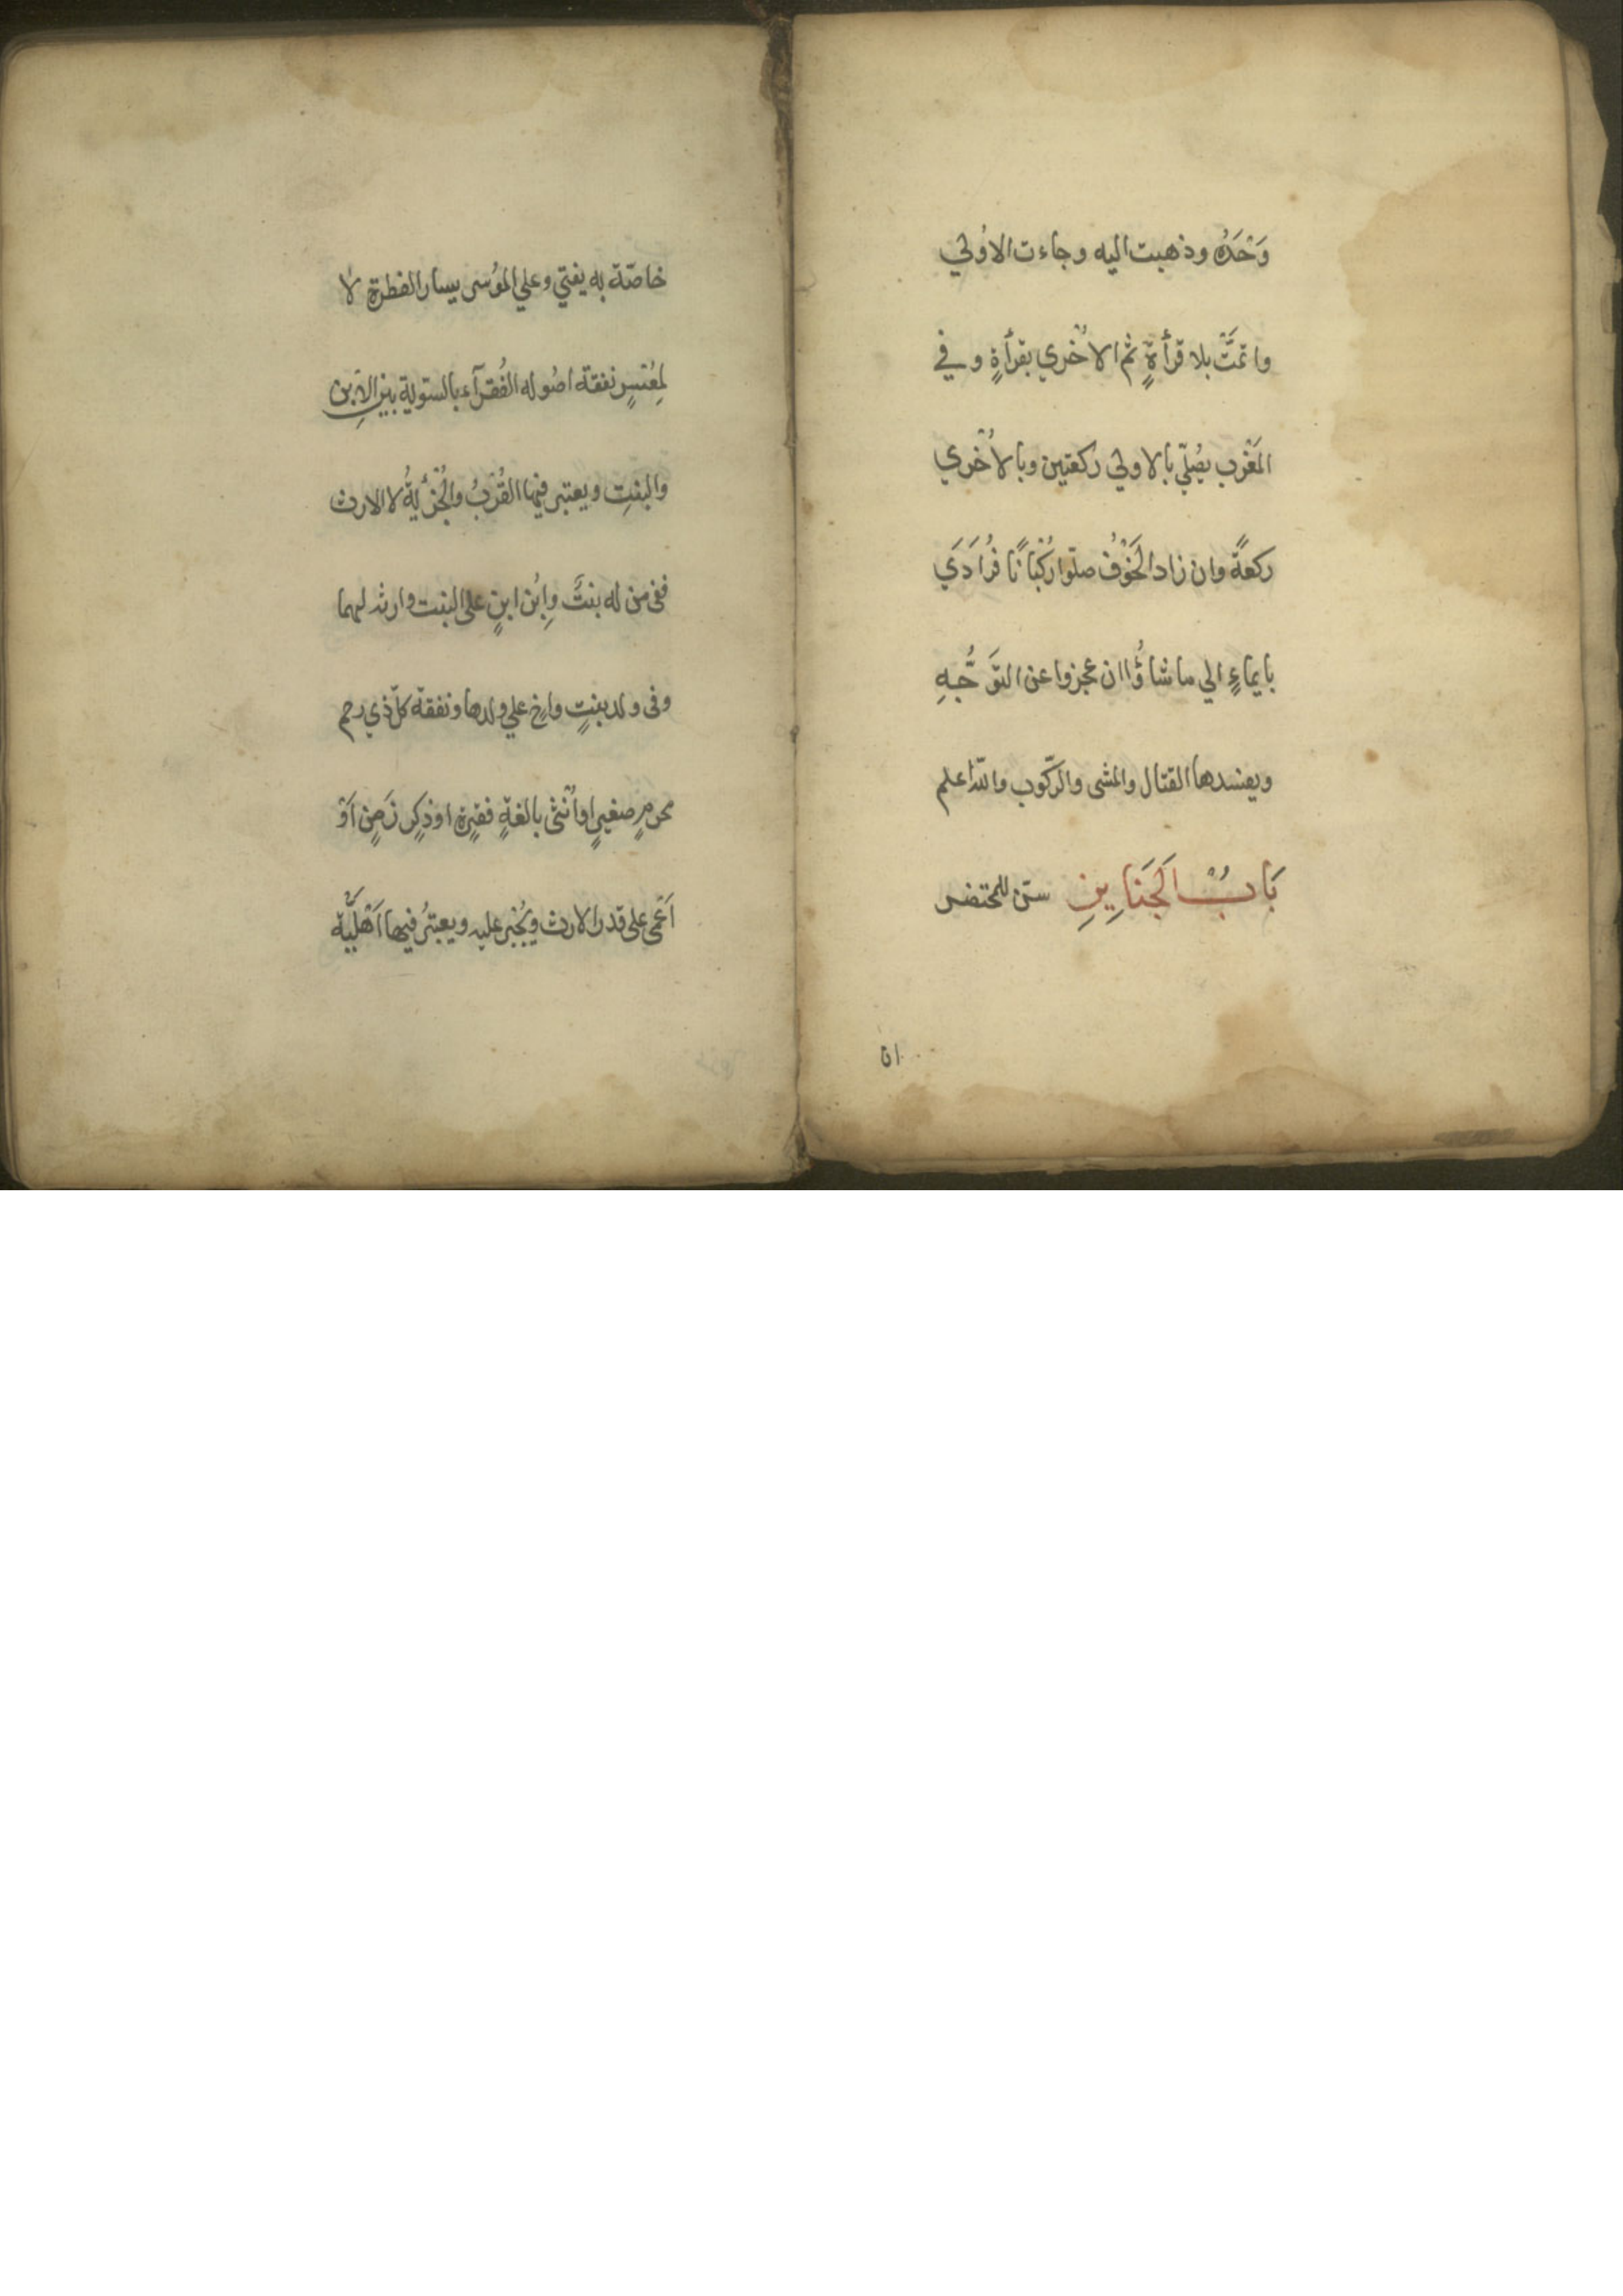 وَحْدَهُ وذهبت اليه وجاءت الاوُلي
واتمَّتْ بلا قرأةٍ ثم الاخُري بقرأةٍ وفي
المَغْرب يصُلّي بالاولي ركعتين وبالاخُري
ركعةً وان زاد الخَوْفُ صلّوا رُكْبَانًا فُرَادَي
بايماءٍ الي ما شاؤُا ان عجزوا عن التوَجُّهِ
ويفسدها القتال والمشى والرّكوب والله اعلم
بَابُ الجَنَايِزِ سنّ للمحتضر
ان
خاصّة به يفتي وعلي الموُسر يسار الفطرة لا
لمِعُسرٍ نفقة اصُوله الفُقرآء بالسّوية بين الابن
والبنتِ ويعتبر فيها القُرْبُ والجُزْئيةُ لا الارث
ففى من له بنتٌ وابُن ابنٍ على البنت وارثه لهما
وفى ولد بنتٍ واخٍ علي ولدها ونفقة كلّ ذي رحم
محرمٍ صغيرٍ او اُنْثى بالغةٍ فقيرةٍ او ذكرٍ زَمِنٍ اَوْ
اَعْمى على قدر الارث ويُجْبر عليه ويعتبرُ فيها اَهْليَّة